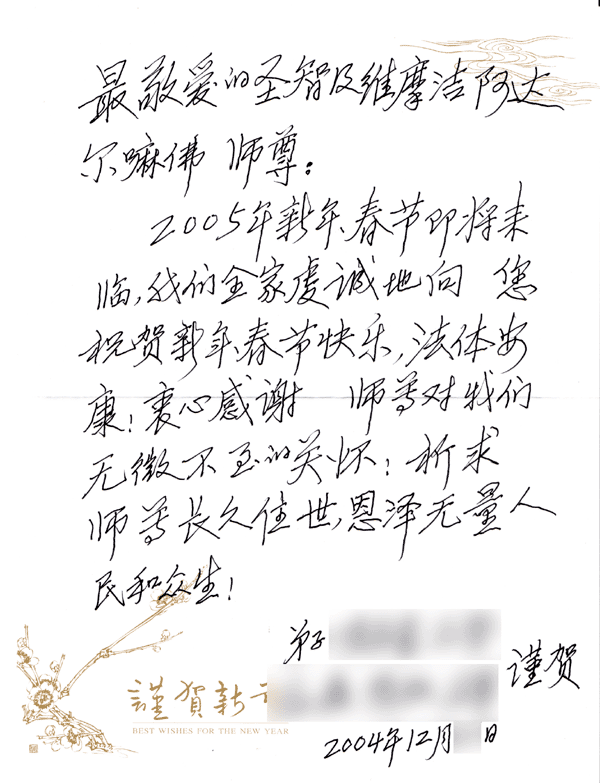 最敬爱的圣智及维摩洁阿达
尔嘛佛 师尊:
2005年新年、春节即将来
临,我们全家虔诚地向 您
祝贺新年、春节快乐,法体安
康!衷心感谢 师尊对我们
无微不至的关怀;祈求
师尊长久住世,恩泽无量人
民和众生!
弟子
谨贺
謹賀新
BEST WISHES FOR THE NEW YEAR
2004年12月 日